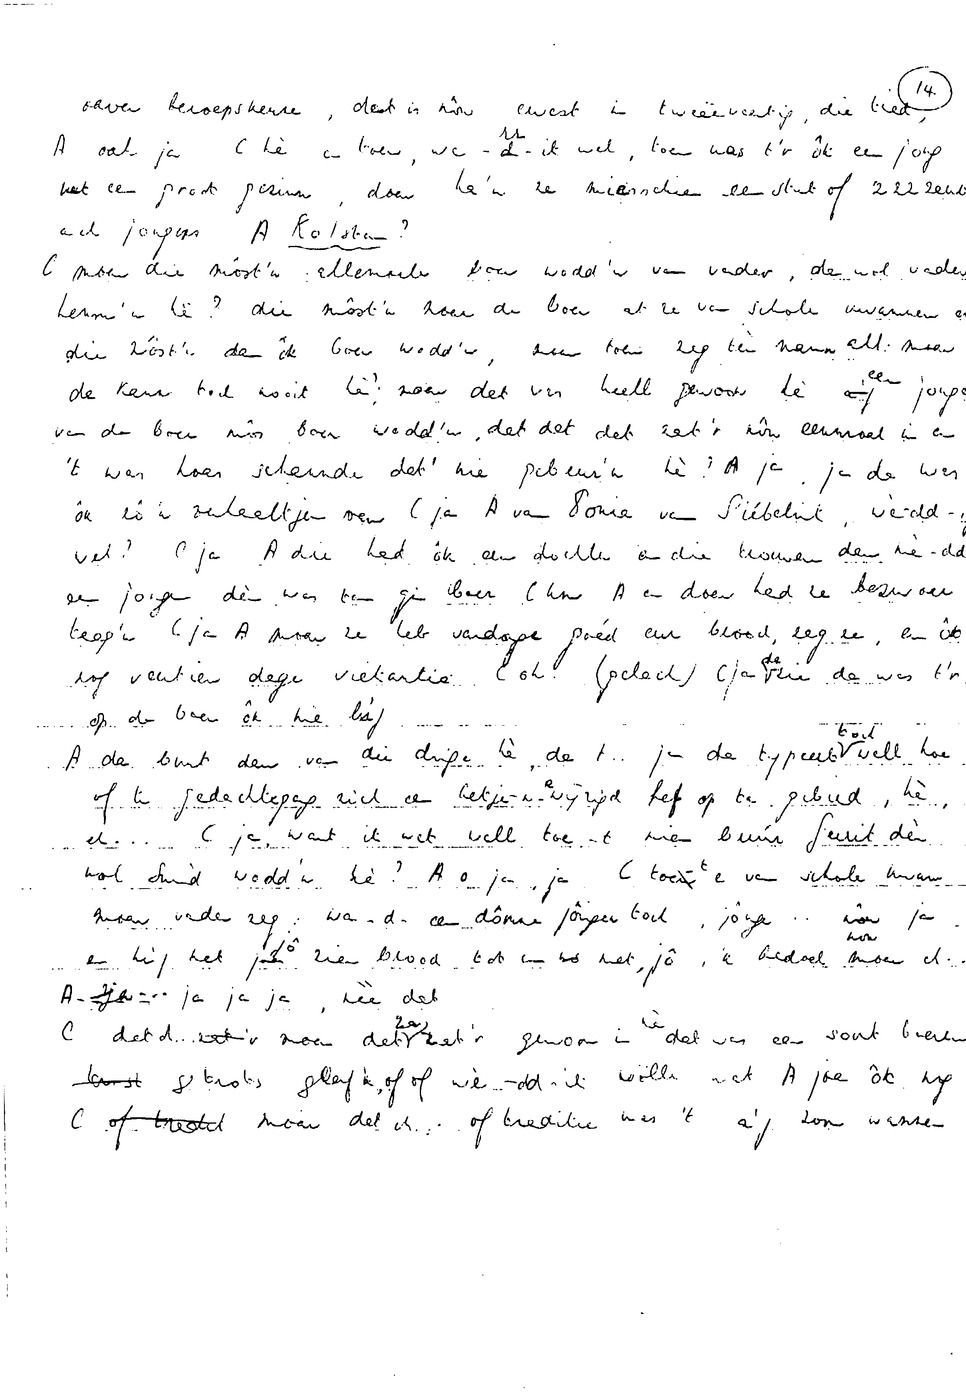 14.
oaver beroepskeuze, dat is nôw ewest in tweeëveertig, die tied,
A oah ja C hè en toen, we-d-it wel, toen was t'r ôk een jong
met een groot gezinn, doar ha'n ze mienschie een stuk of zzz zeuv
ach jongens A Kolsten?
C moar die móst'n allemoale boer wodd'n van vader, de wol vader
hemm'n hè? die móst'n noar de boer at ze van schole kwammen en
die móst'n dan ôk boer wodd'n, moar toen zeg
de kann toch nooit hè? moar det was heell gewoon hè een jonge
van de boer mós boer wodd'n, det det det zat'r nôw eenmoal in en
't was hoas schannde det' nie gebeur'n hè? A ja, ja de was
ôk zô'n verhaeltjen van C ja A van Tonia van Siebelink, wè-dd-
wel? C ja A die had ôk een dochter en die trouwen den hè-dd
een jonge dèn was ten gin boer C hm A en doar had ze bezwoar
teeg'n C ja A moar ze heb vandage goéd eur brood, zeg ze, en ôk
nog veertien dage viekantie C oh! (gelach) C ja de die de was t'r
op de boer ôk nie bi'j
A da bunt dan van die dinge hè, de t.. ja da typeert toch well hoe
of de gedachtegang zich een betje-n-ewijzigd hef op ta gebied, hè,
eh... C ja, want ik wet well toe-t mien buur Gerrit dèn
wol smid wodd'n hè? A o ja, ja C toet e van schole kwam
moar vader zeg: wa-d- een dômme jôngen toch, jônge .. nôw ja
en hi'j het jô zien brood tot en mo met, jô, 'k bedoel moar eh..
A ja ja ja, nèe det
C det d... moar det zat'r gewoon in hè det was een soort boeren
trots gleuf'k, of of wè-dd-it wille wat A joa ôk nog
C of tradt moar det eh... of traditie was 't a'j zon wannen